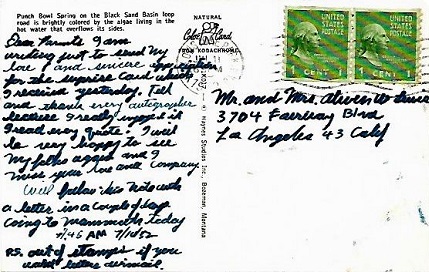 Punch Bowl Spring on the Black Sand Basin loop
road is brightly colored by the algae living in the
hot water that overflows its sides.
Dear Parents I am
writing just to send my
love and sincere
for the surprise card which
I received yesterday. Tell
and thank every
because I really enjoyed it
I read every quote. I will
be very happy to see
my folks again and I
miss your love and company.
Will follow this note with
a letter in a couple of days
Going to Mammoth today
7/14/52
P.S. out of stamps if you
want letters airmail.
NATURAL
Color Card
FROM KODACHROME
Haynes Studios Inc., Bozeman, Montana
UNITED
STATES
POSTAGE
1 CENT 1
UNITED
STATES
POSTAGE
1 CENT 1
Mr. and Mrs.
3704 Fairway Blvd
Los Angeles 43 Calif